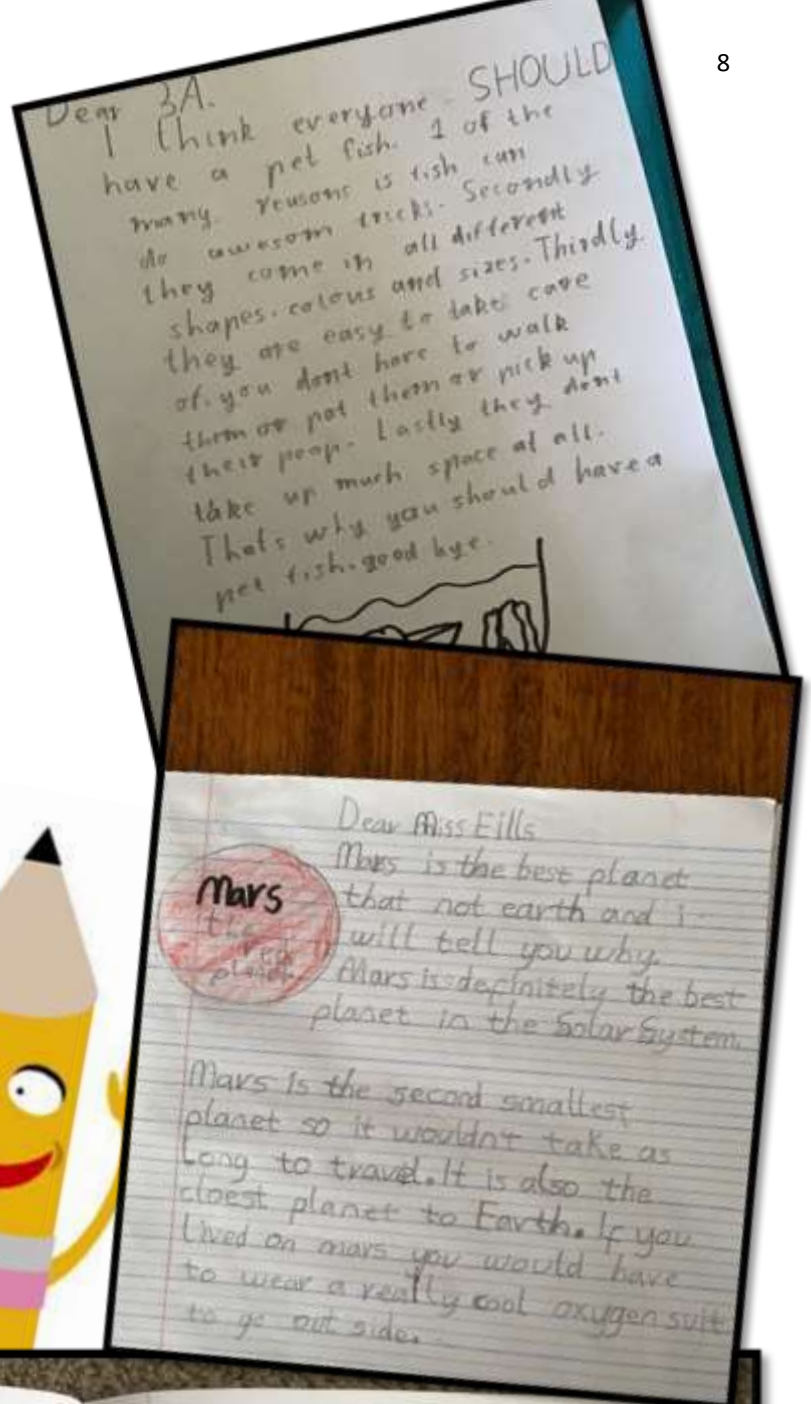 8
Dear 3A.
I think everyone SHOULD
have a pet fish. 1 of the
many reasons is fish can
do awesom tricks. Secondly
they come in all different
shapes. colous and sizes. Thirdly
they are easy to take care
of. you dont have to walk
them or pat them or pick up
their poop. Lastly they dont
take up much space at all.
Thats why you should have a
pet fish. good bye.
Dear Miss Eills
Mars is the best planet
that not earth and i
will tell you why.
Mars is definitely the best
planet in the Solar System.
Mars
the
red
planet
Mars is the second smallest
planet so it wouldn't take as
long to travel. It is also the
cloest planet to Earth. If you
lived on mars you would have
to wear a really cool oxygen suit
to go out side.